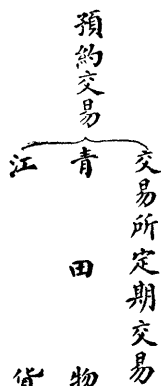 預約交易
交易所定期交易
青田物
江貨